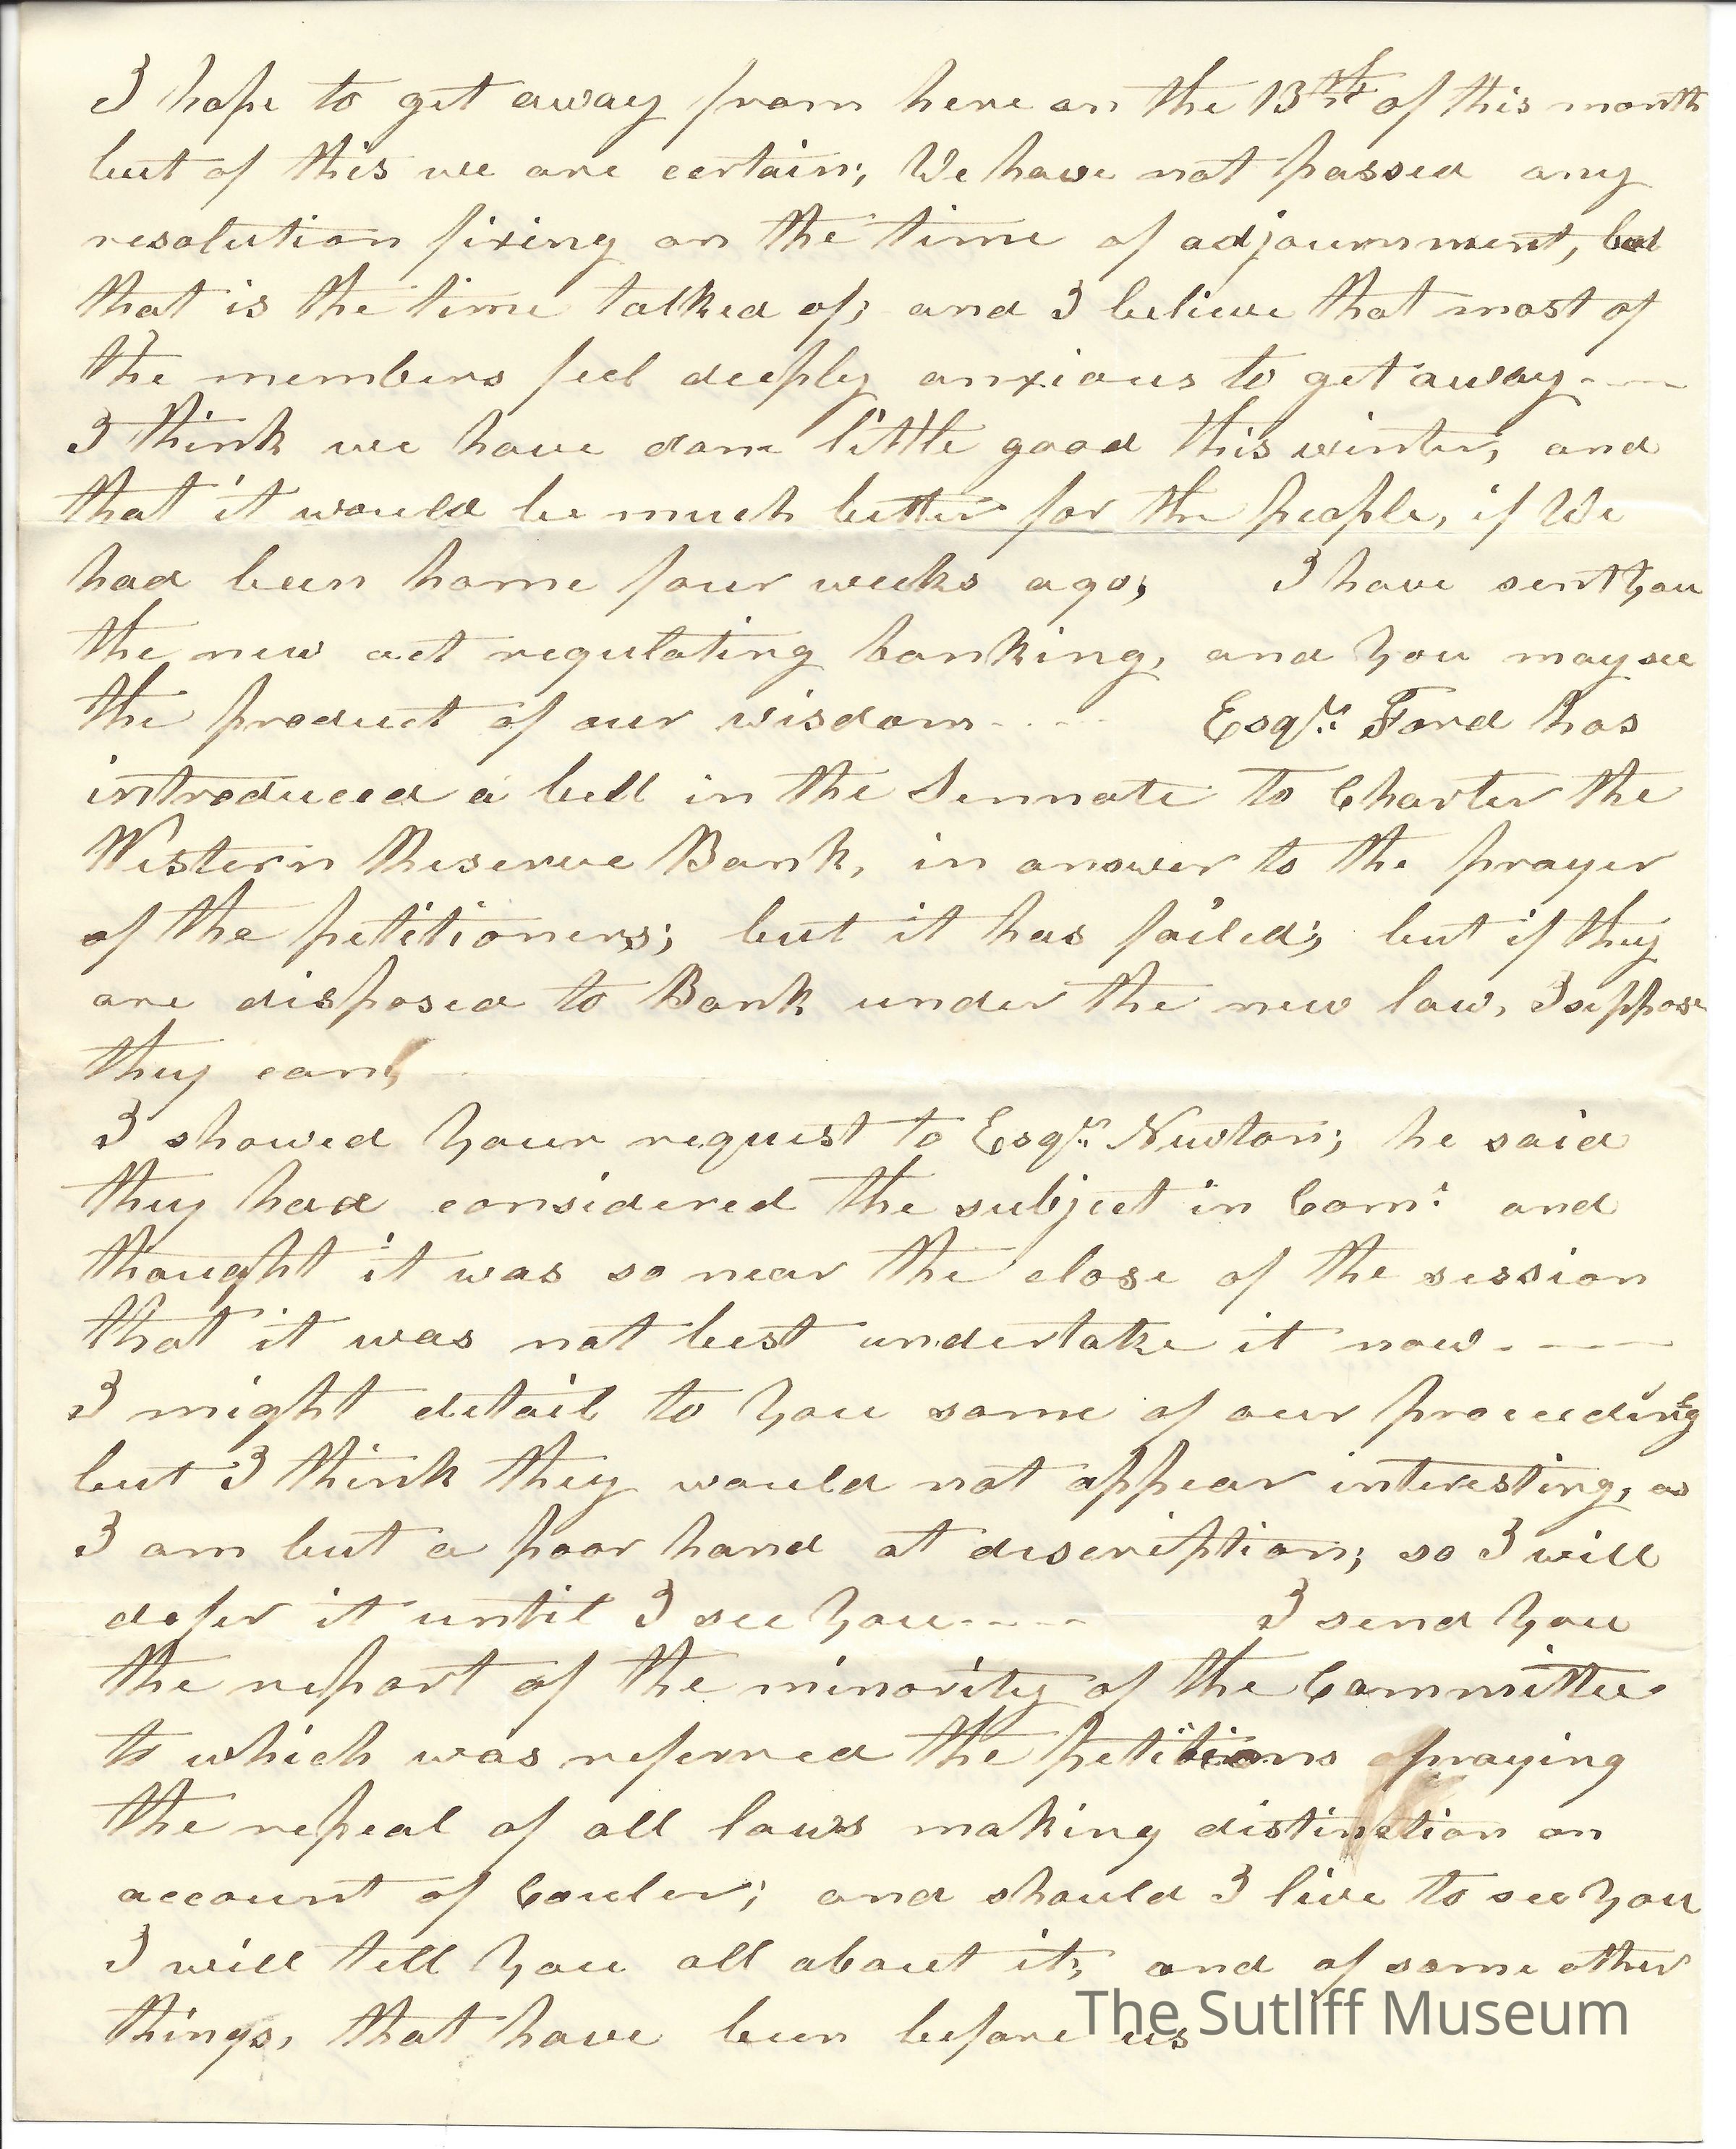 I hope to get away from here on the 13th of this month
but of this we are certain; We have not passed any
resolution fixing on the time of adjournment, but
that is the time talked of; and I believe that most of
the members feel deeply anxious to get away----
I think we have done little good this winter, and
that it would be much better for the people, if We
had been home four weeks ago; I have sent You
the new act regulating banking, and You may see
the product of our wisdom---- Esqr. Ford has
introduced a bill in the Sennate to Charter the
Western Reserve Bank, in answer to the prayer
of the petitioners; but it has failed; but if they
are disposed to Bank under the new law, I suppose
they can,
I showed Your request to Esqr. Newton; he said
they had considered the subject in Com: and
thought it was so near the close of the session
that it was not best undertake it now.---
I might detail to You some of our proceedings
but I think they would not appear interesting, as
I am but a poor hand at discription; so I will
defer it until I see You---- I send You
the report of the minority of the Committee
to which was referred the petitions praying
the repeal of all laws making distinction on
account of Couler; and should I live to see You
I will tell You all about it, and of some other
things, that have been before us
The Sutliff Museum